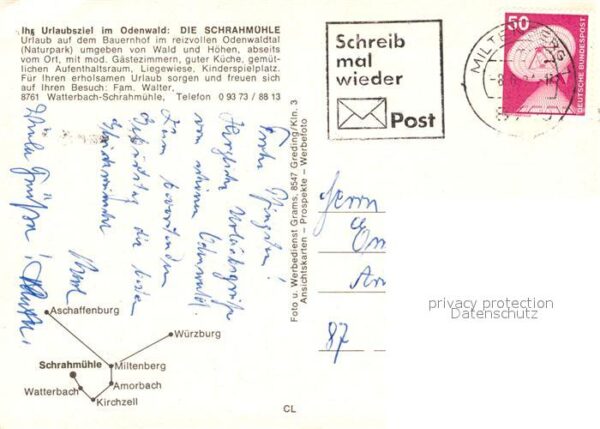 Ihr Urlaubsziel im Odenwald: DIE SCHRAHMÜHLE
Urlaub auf dem Bauernhof im reizvollen Odenwaldtal
(Naturpark) umgeben von Wald und Höhen, abseits
vom Ort, mit mod. Gästezimmern, guter Küche, gemüt-
lichen Aufenthaltsraum, Liegewiese, Kinderspielplatz.
Für Ihren erholsamen Urlaub sorgen und freuen sich
auf Ihren Besuch: Fam. Walter,
8761 Watterbach-Schrahmühle, Telefon 0 93 73 / 88 13
Frohe Pfingsten!
Herzliche Urlaubsgrüße
vom schönen Odenwald.
Zum bevorstehenden
Geburtstag die besten
Glückwünsche
Viele Grüße!
Aschaffenburg
Würzburg
Schrahmühle
Miltenberg
Watterbach
Amorbach
Kirchzell
CL
Foto u. Werbedienst Grams, 8547 Greding/Kln. 3
Ansichtskarten - Prospekte - Werbefoto
Schreib
mal
wieder
Post
MILTENBERG
50
DEUTSCHE BUNDESPOST
Herrn
87
privacy protection
Datenschutz